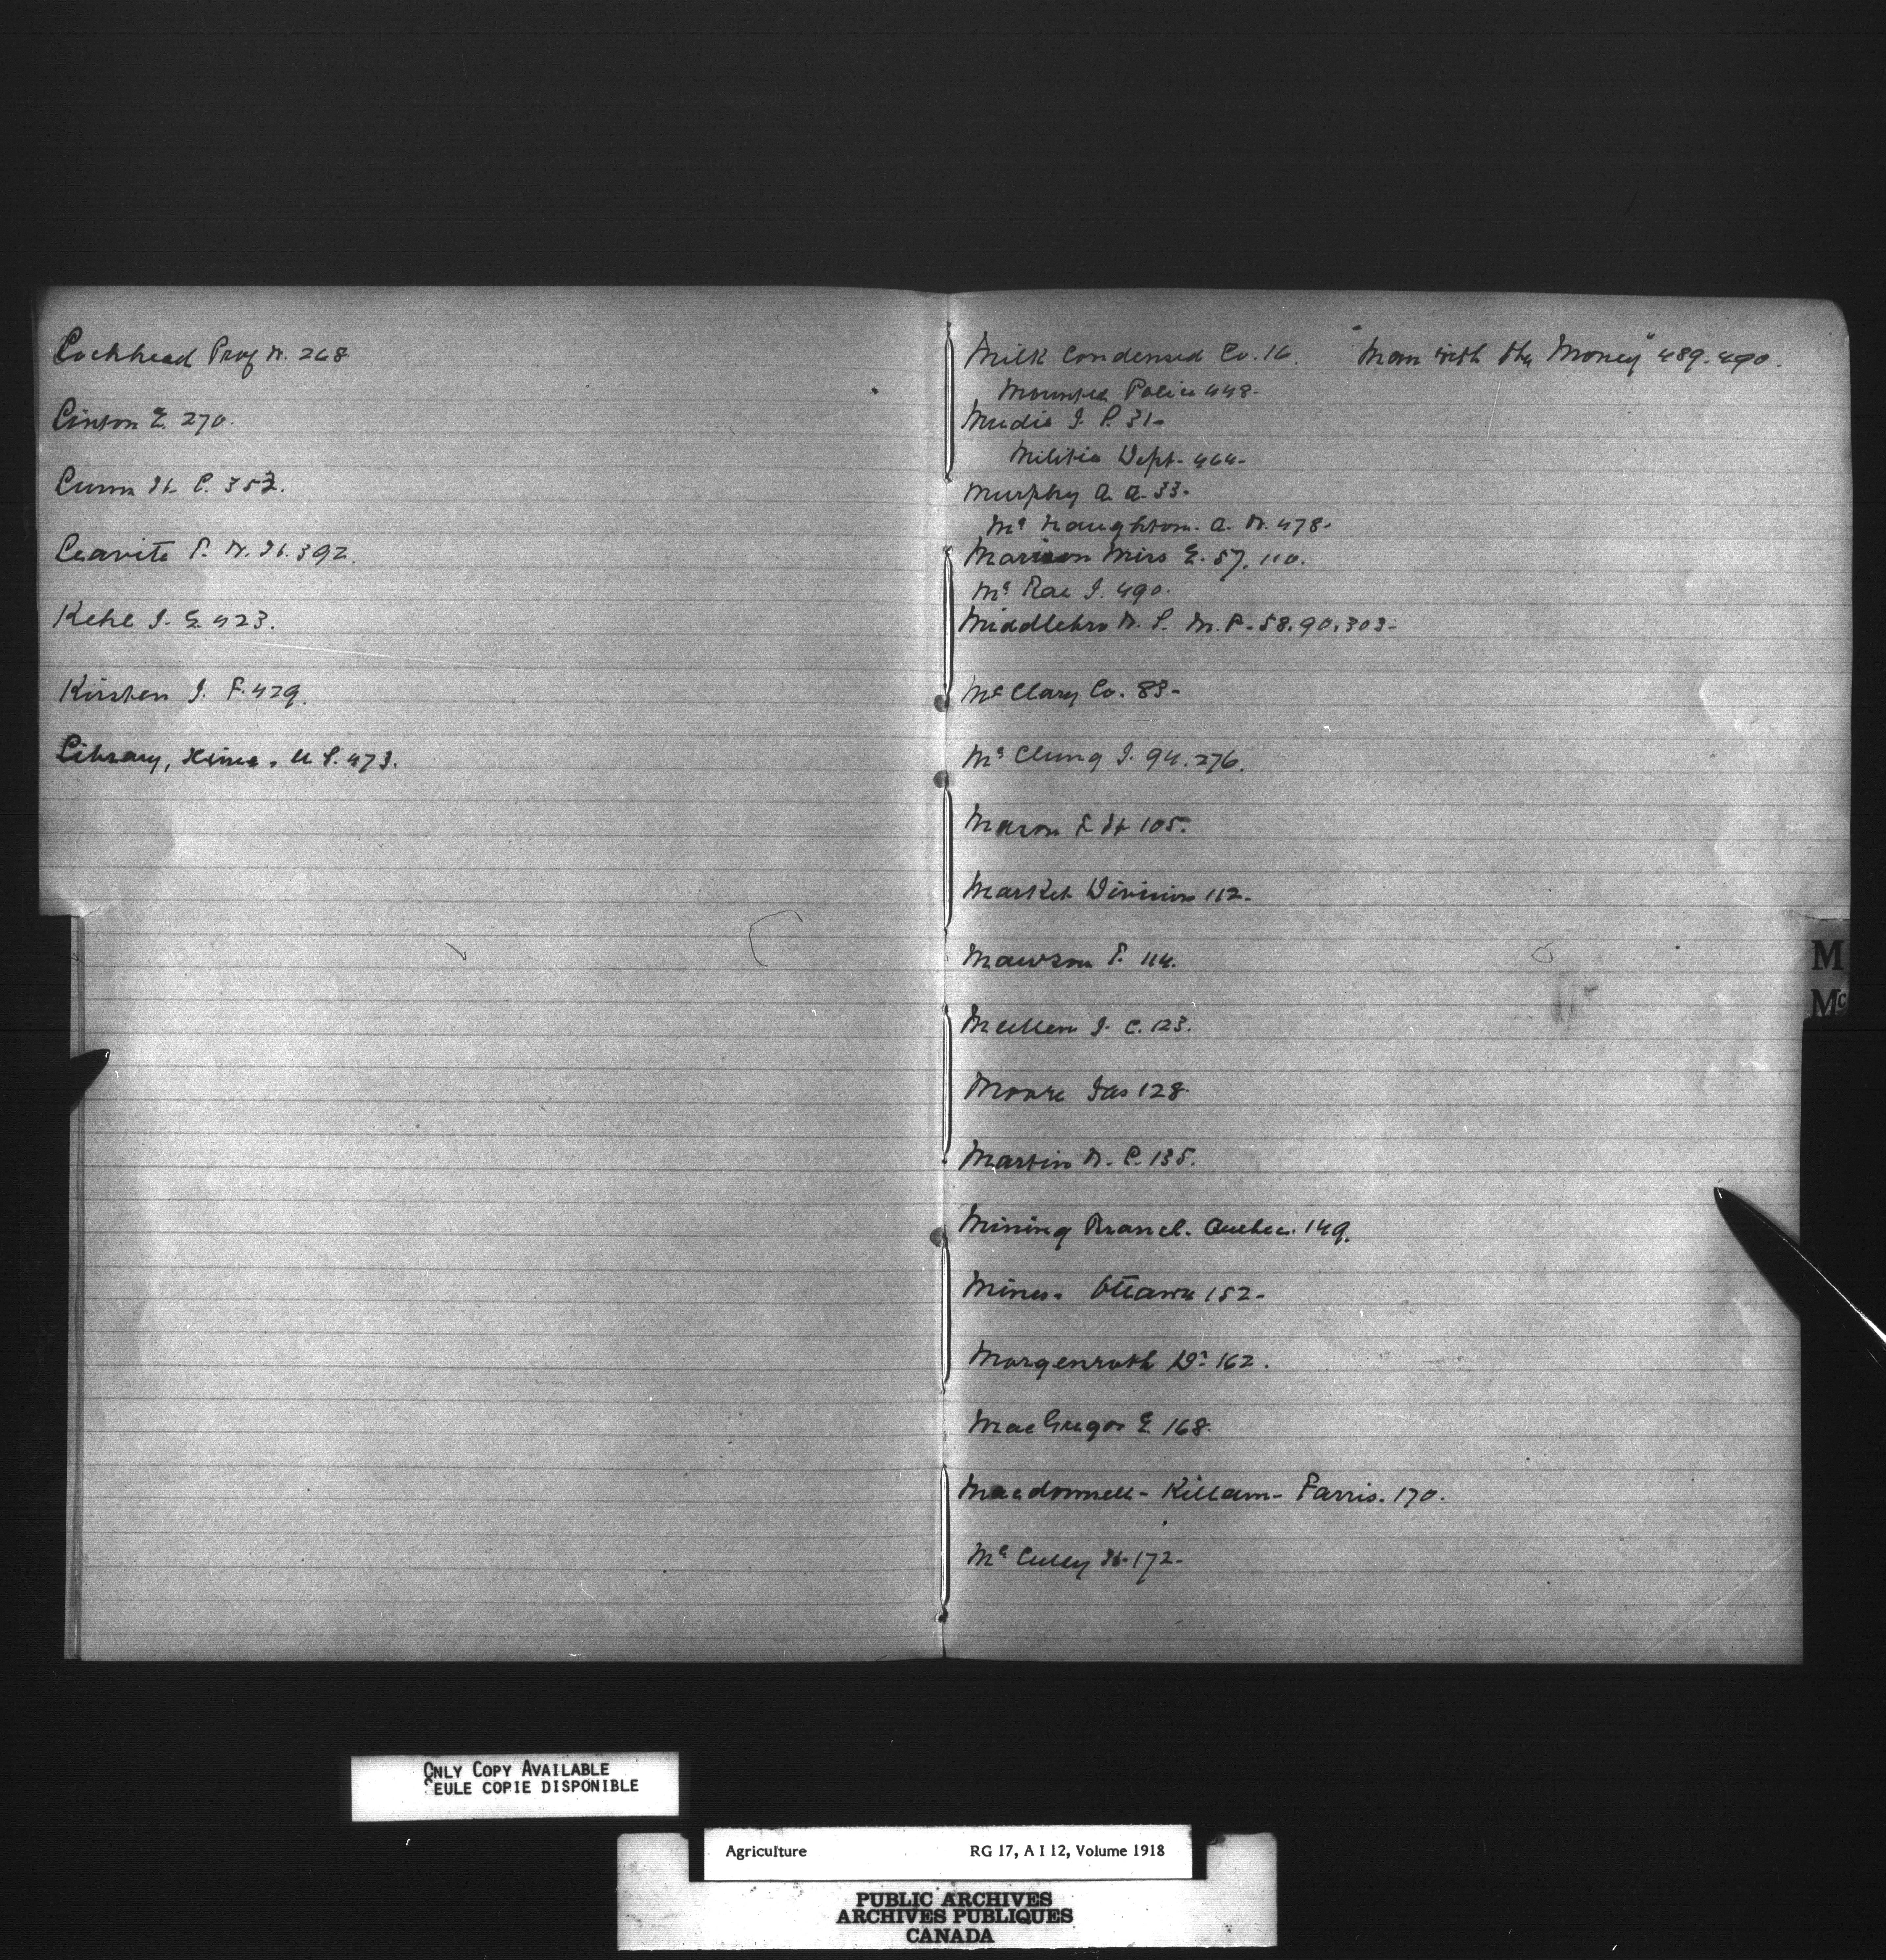 Lochhead Prof W. 268
Linton E. 270.
Lunn H. C. 353.
Leavitt P. W. H. 392.
Kehl J. E. 423.
Kirsten J. F. 429.
Library, Xime. U S. 473.
Milk Condensed Co. 16. "Man with the Money" 489-490.
Mounted Police 448.
Mudie J. P. 31-
Militia Dept- 464-
Murphy A. A. 33-
Mc Naughton. A. W. 478-
Marison Miss E. 57. 110.
Mc Rae J. 490.
Middlebro W. S. M.P. 58. 90. 303-
Mc Clary Co. 83-
Mc Clung J. 94. 276.
Mason F H 105.
Market Division 112-
Mawson S. 114.
Mullen J. C. 123.
Moore Jas 128.
Martin W. C. 135.
Mining Branch. Quebec. 149.
Mines- Ottawa 152-
Morgenroth Dr 162.
MacGregor E 168.
Macdonnell- Killam- Farris. 170.
Mc Cully H. 172-
M
Mc
ONLY COPY AVAILABLE
SEULE COPIE DISPONIBLE
Agriculture RG 17, A I 12, Volume 1918
PUBLIC ARCHIVES
ARCHIVES PUBLIQUES
CANADA